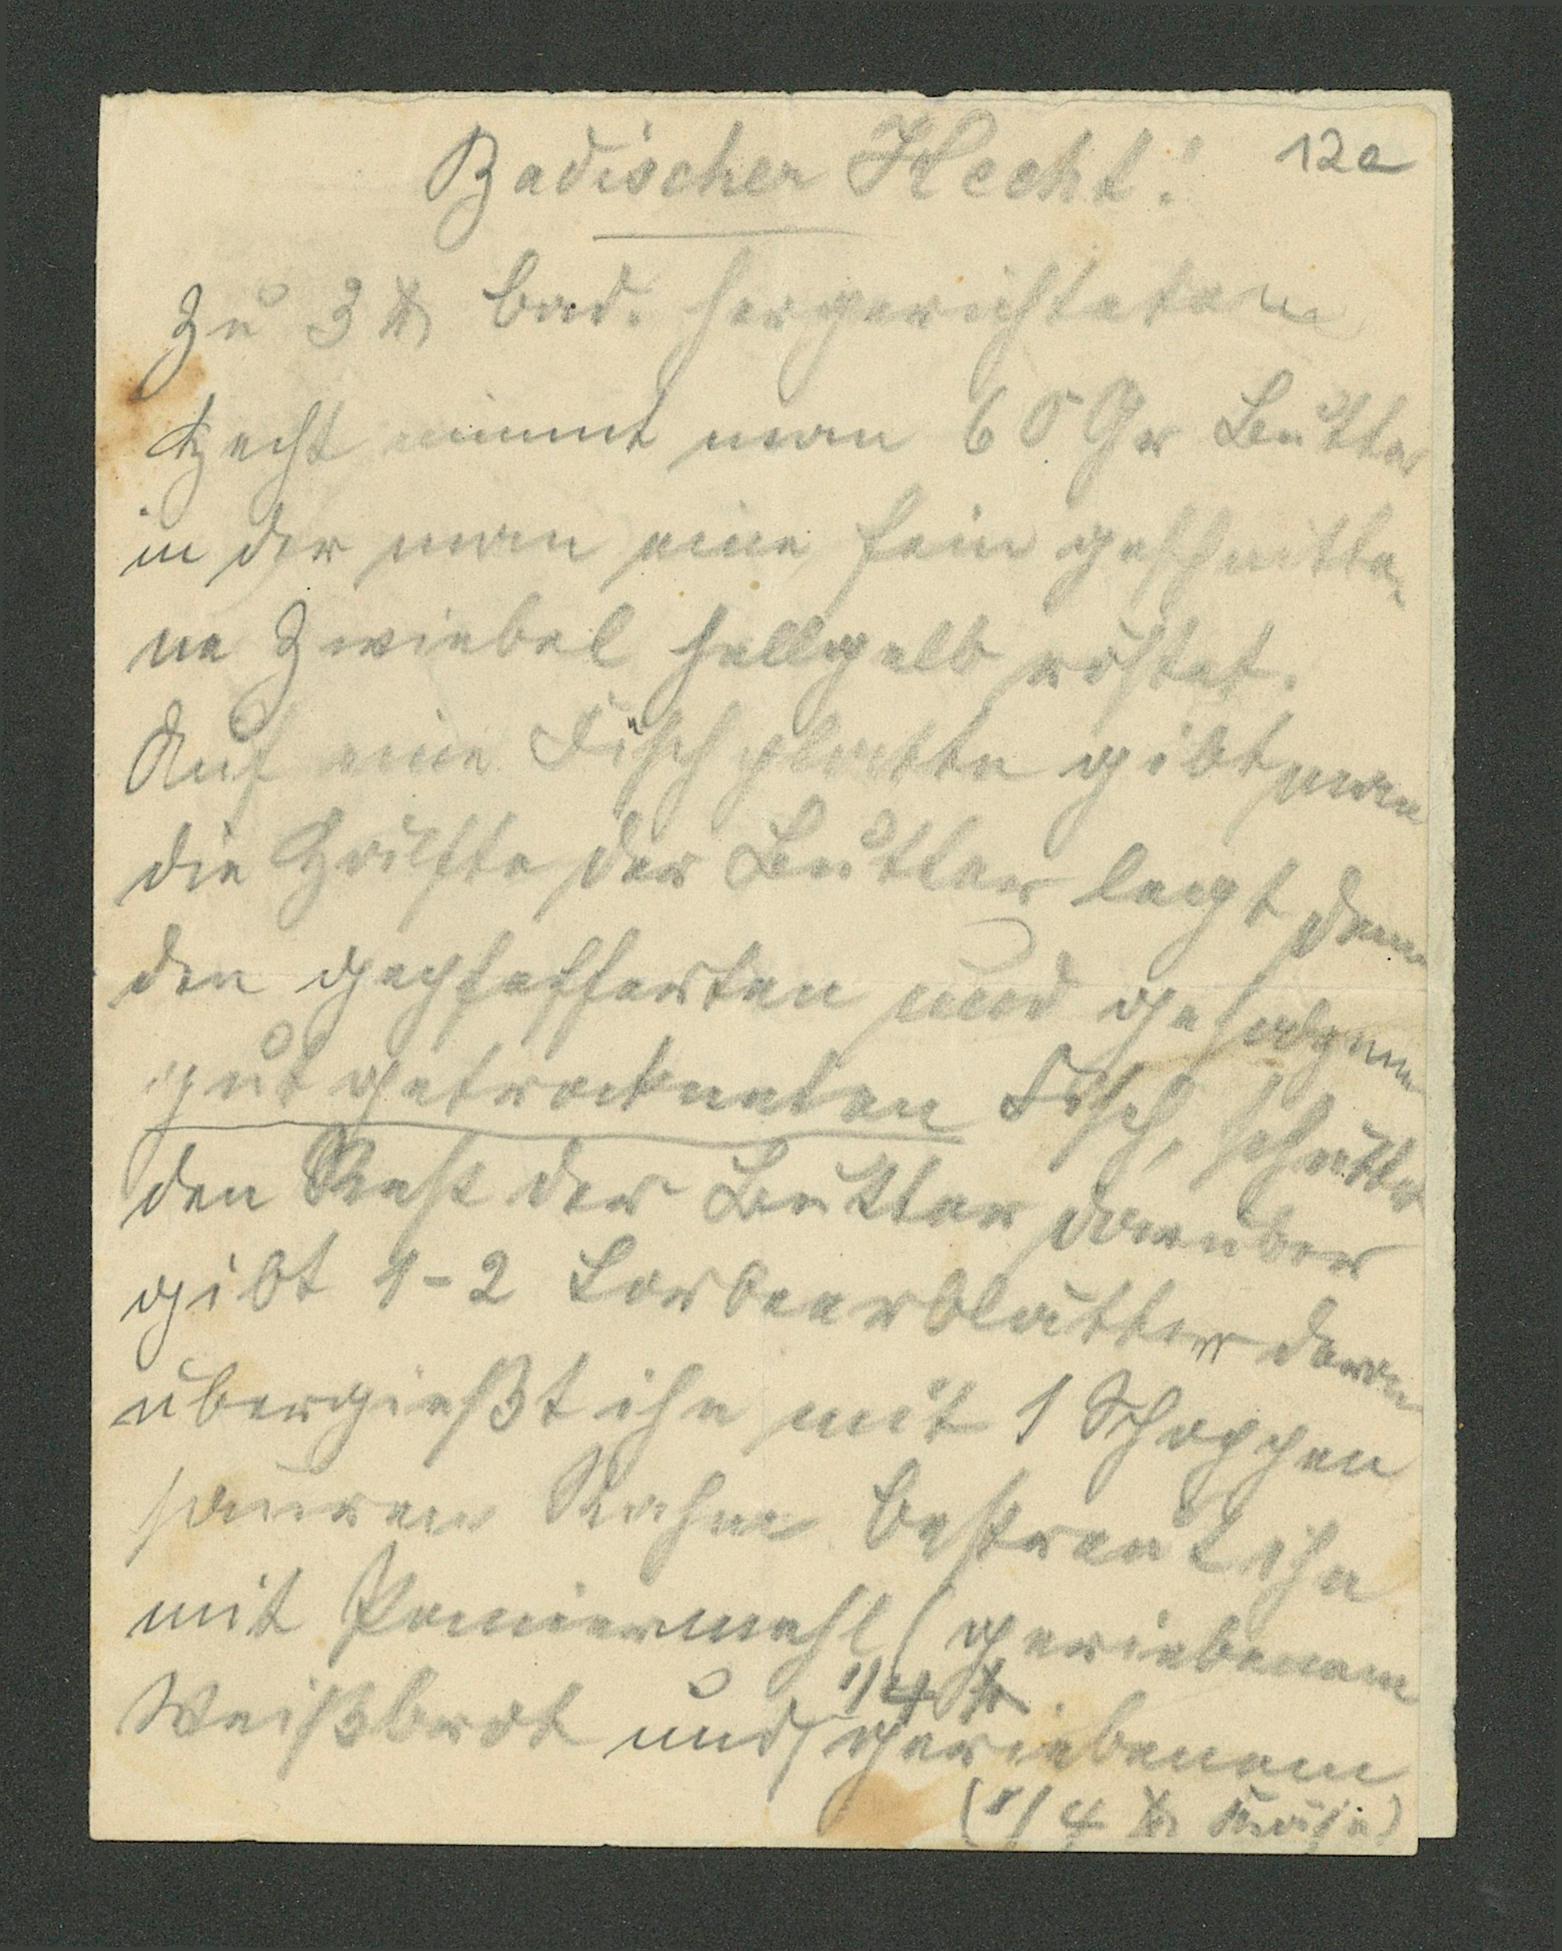 Badischer Hecht! 12a
Zu 3 ℔ bad. hergerichtetem
Hecht nimmt man 60 Gr Butter
in der man eine fein geschnitte-
ne Zwiebel hellgelb röstet.
Auf eine Fischplatte gibt man
die Hälfte der Butter legt dann
den gepfefferten und gesalzenen
gut getrockneten Fisch, schüttet
den Rest der Butter darüber
gibt 1-2 Lorbeerblätter daran
übergießt ihn mit 1 Schoppen
sauren Rahm bestreut ihn
mit Paniermehl (geriebenem
1/4 ℔
Weißbrot und geriebenem
(1/4 ℔ Käse)